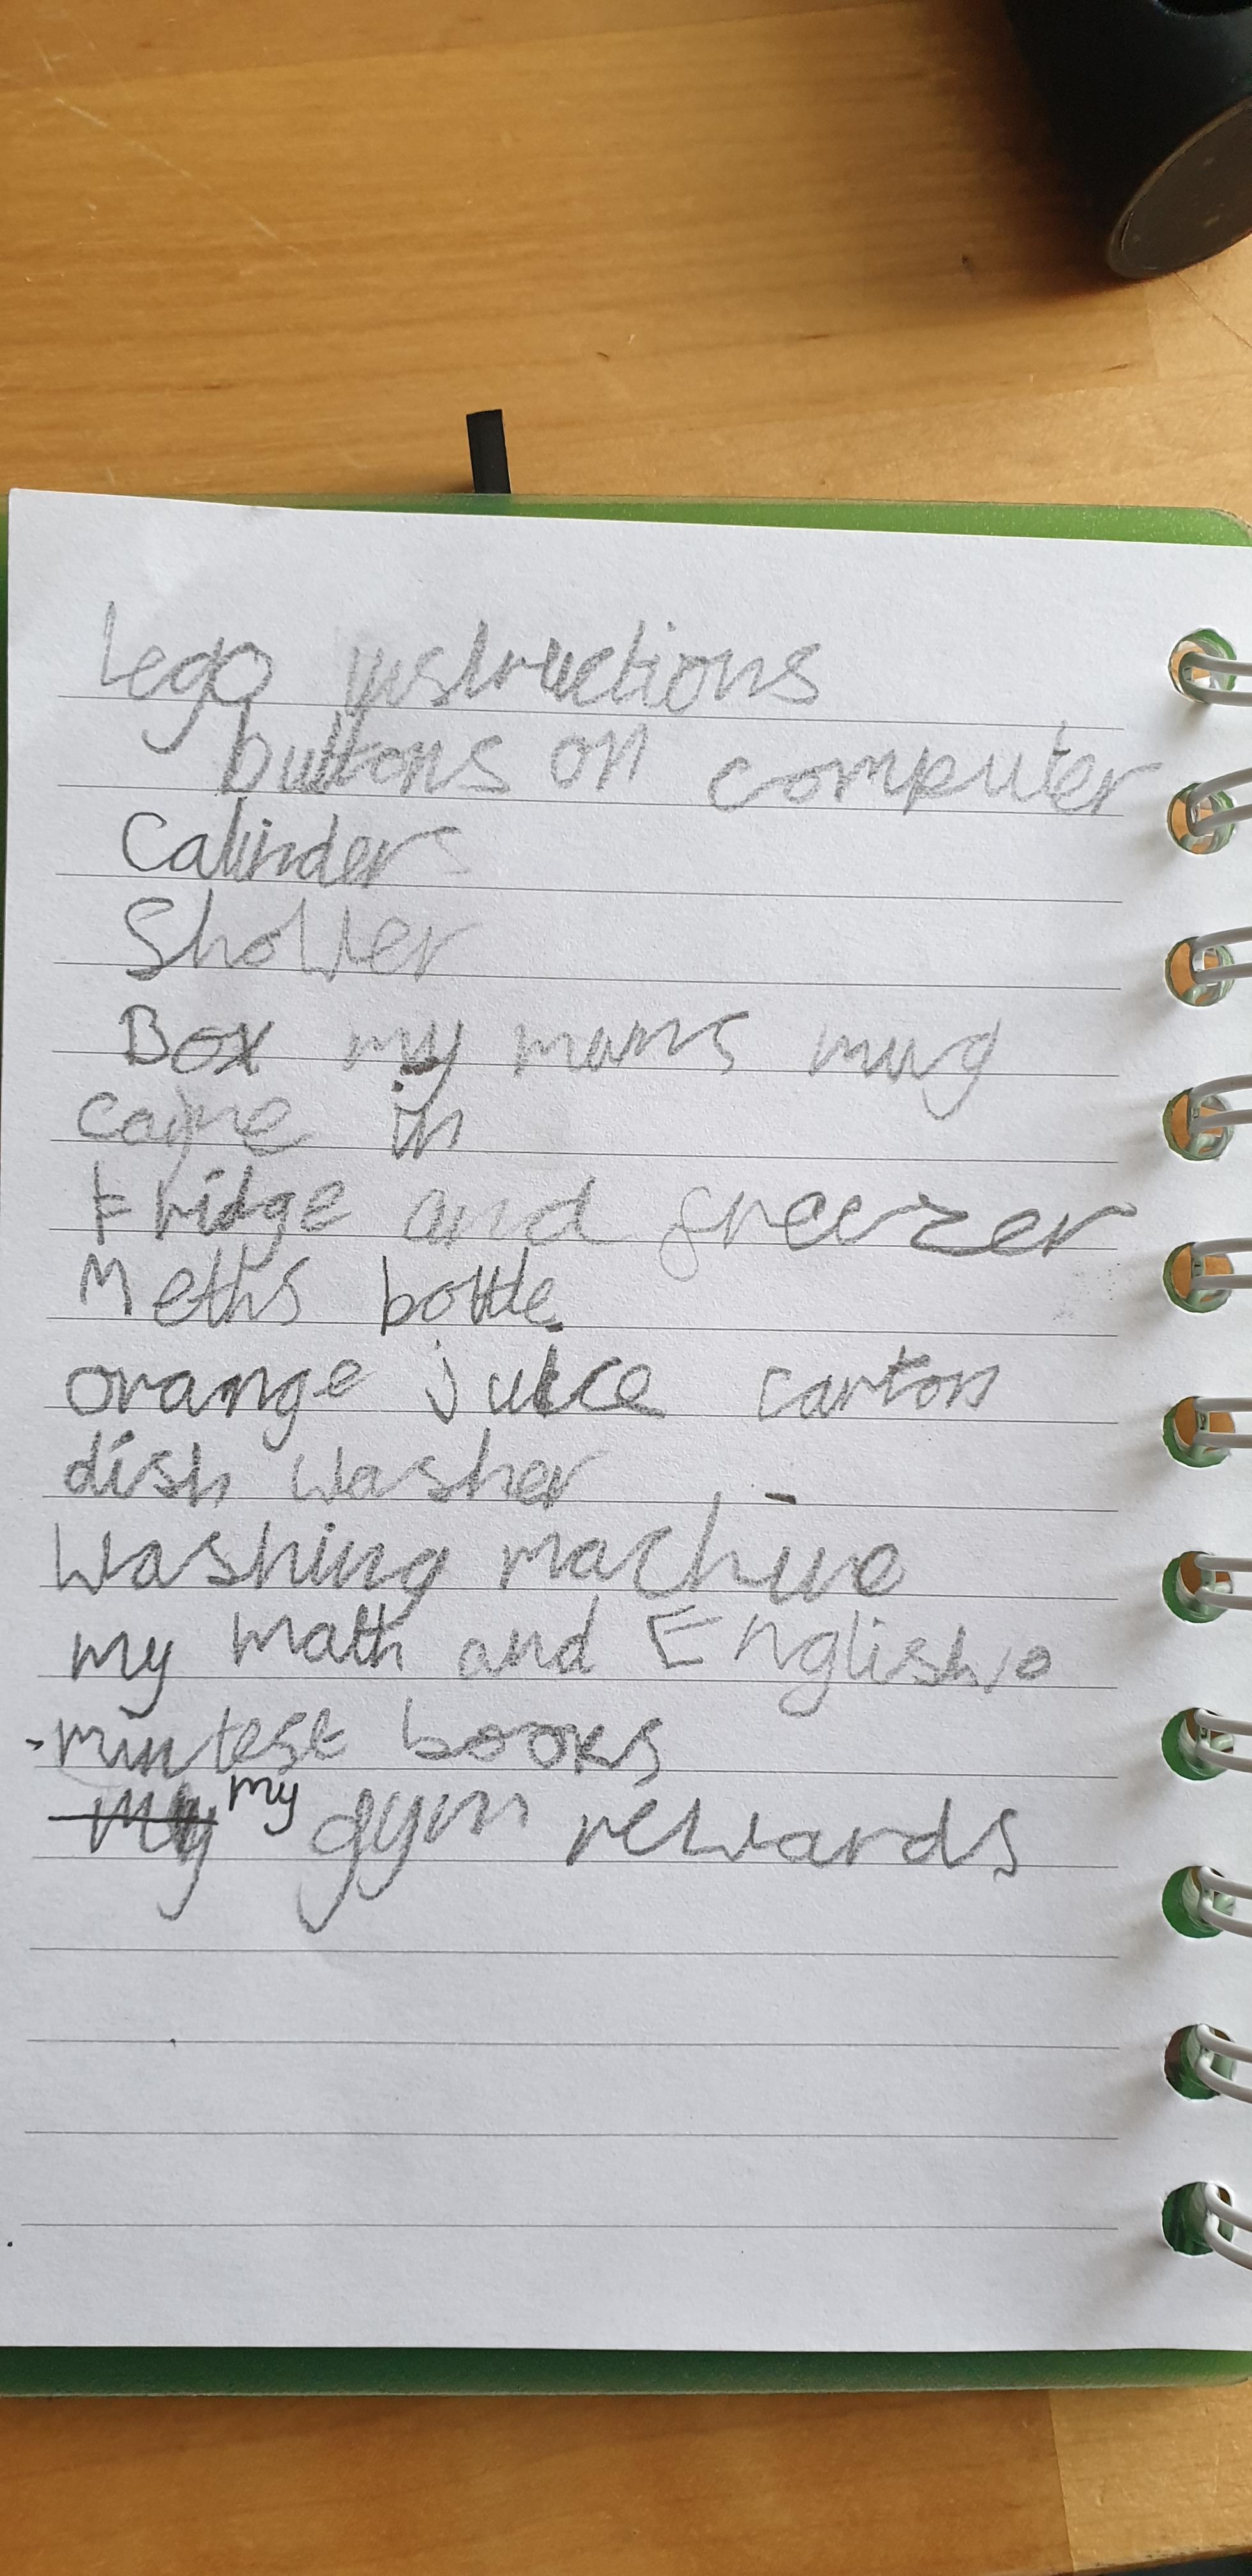 Lego instructions
buttons on computer
Calinders
Shower
Box my mums mug
came in
Fridge and freezer
Meths bottle
orange juice carton
dish washer
Washing machine
my math and English 10
mintest books
my my gym rewards